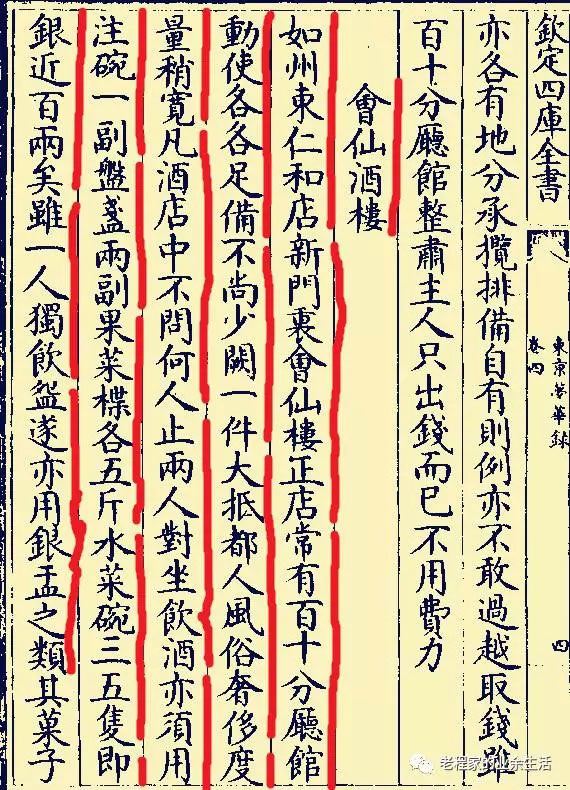 欽定四庫全書
東京夢華錄
卷四
四
亦各有地分承攬排備自有則例亦不敢過越取錢雖
百十分廳館整肅主人只出錢而已不用費力
會仙酒樓
如州東仁和店新門裏會仙樓正店常有百十分廳館
動使各各足備不尚少闕一件大抵都人風俗奢侈度
量稍寬凡酒店中不問何人止兩人對坐飲酒亦須用
注碗一副盤盞兩副果菜楪各五斤水菜碗三五隻即
銀近百兩矣雖一人獨飲盌遂亦用銀盂之類其菓子
老程家的业余生活